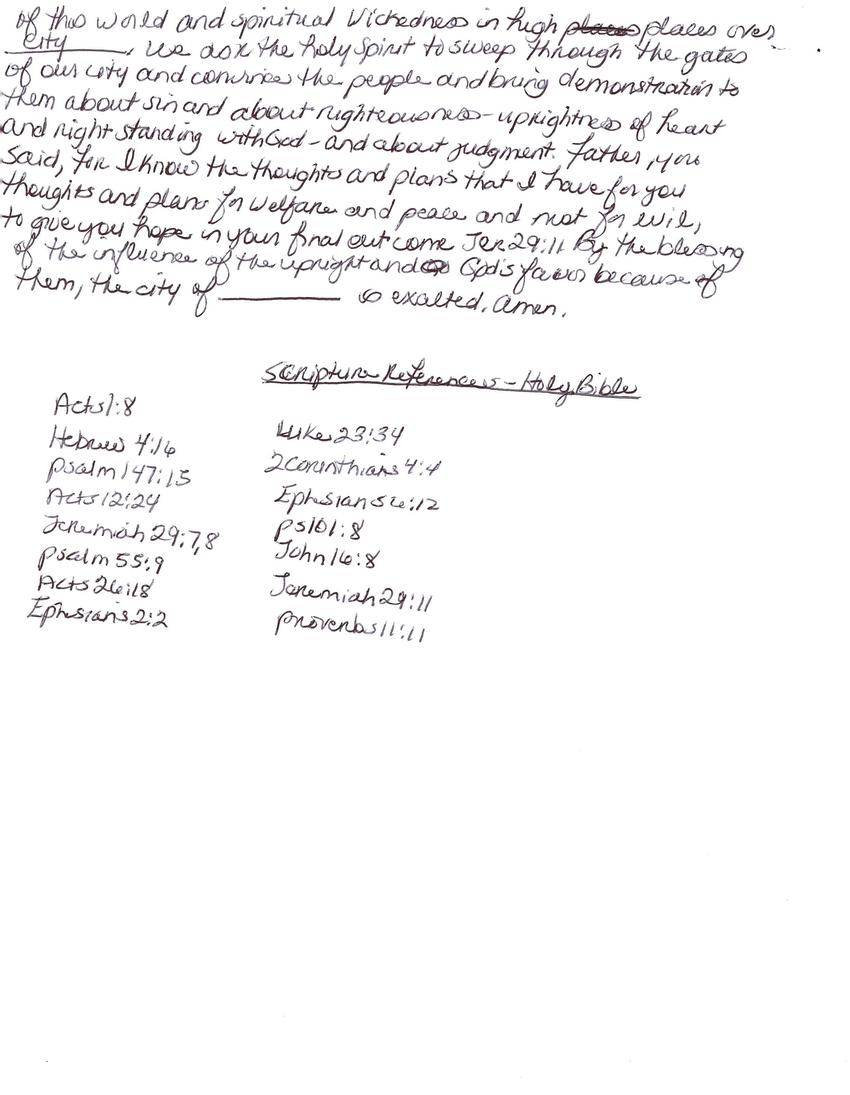 of this world and spiritual Wickedness in high places places over
City, we ask the holy Spirit to sweep through the gates
of our city and convince the people and bring demonstration to
them about sin and about righteousness - uprightness of heart
and right standing with God - and about judgment. Father, you
Said, for I know the thoughts and plans that I have for you
thoughts and plans for welfare and peace and not for evil,
to give you hope in your final outcome Jer 29:11 By the blessing
of the influence of the upright and God's favor because of
them, the city of ________ is exalted. Amen.
Scripture References - Holy Bible
Acts 1:8
Hebrew 4:16
Psalm 147:15
Acts 12:24
Jeremiah 29:7,8
Psalm 55:9
Acts 26:18
Ephesians 2:2
Luke 23:34
2 Corinthians 4:4
Ephesians 6:12
Ps 101:8
John 16:8
Jeremiah 29:11
Proverbs 11:11